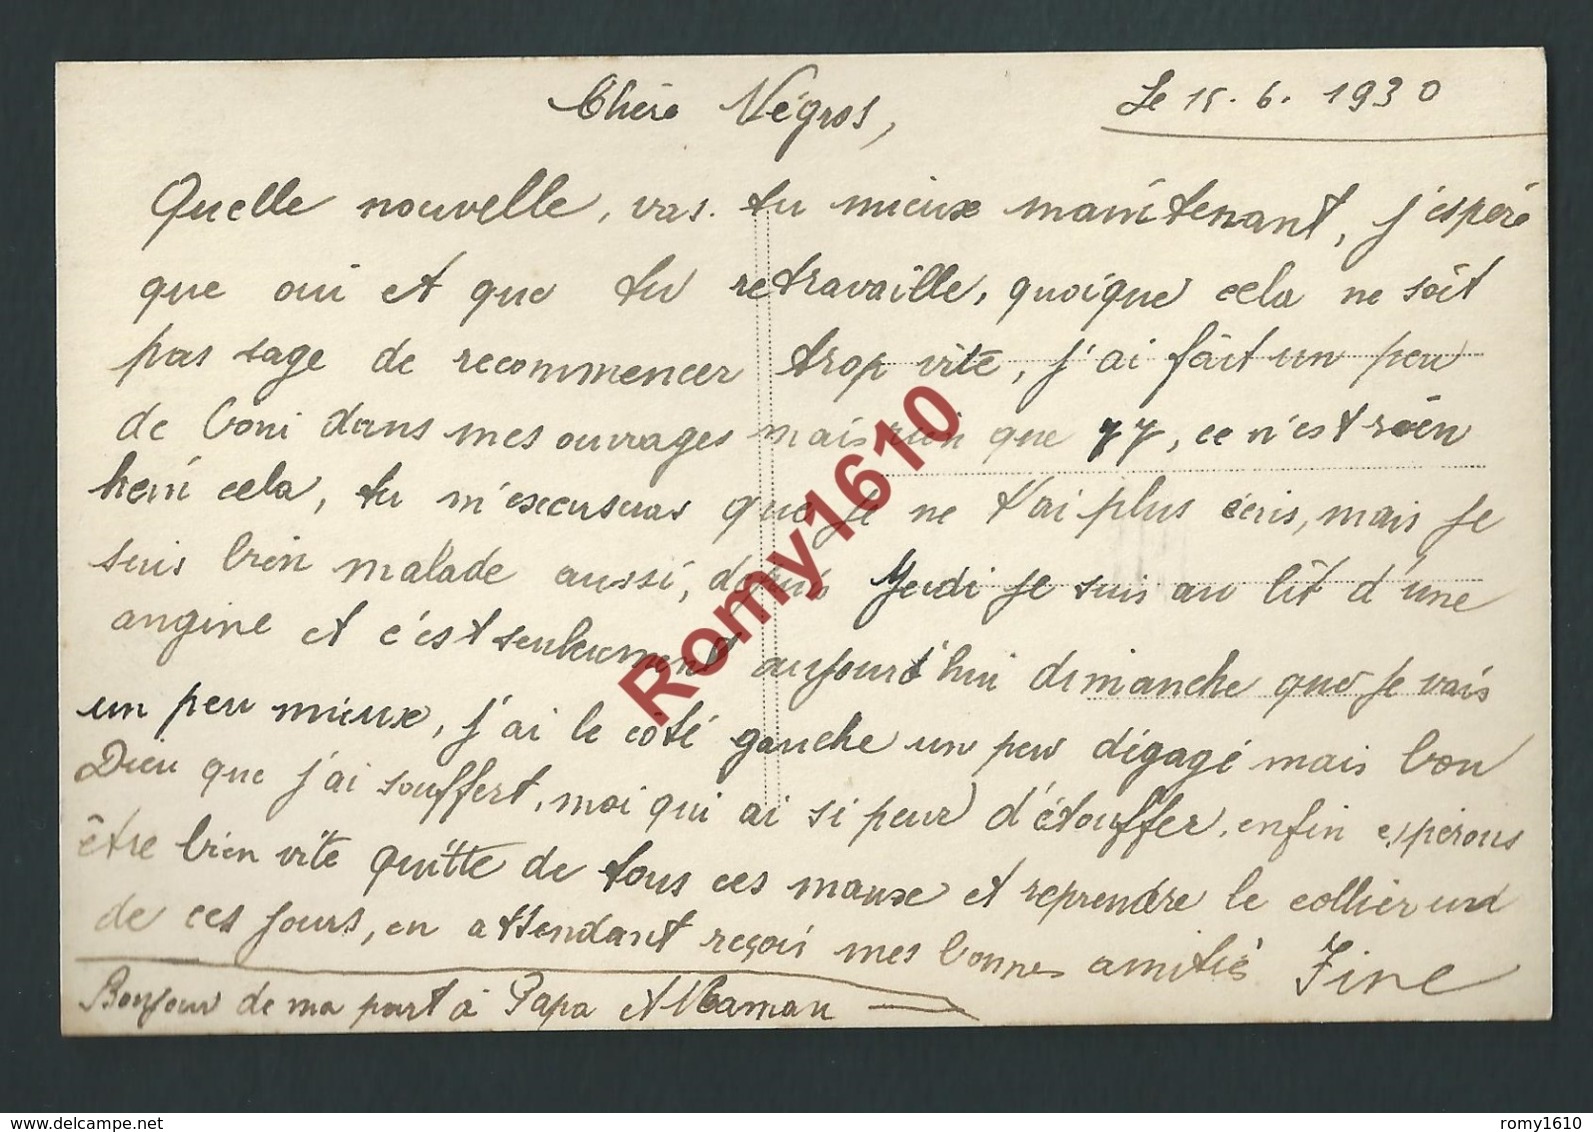 Le 15.6.1930
Chère Négros,
Quelle nouvelle, vas-tu mieux maintenant, j'espère
que oui et que tu retravaille, quoique cela ne soit
pas sage de recommencer trop vite, j'ai fait un peu
de boni dans mes ouvrages mais rien que 77, ce n'est rien
hein cela, tu m'excuseras que je ne t'ai plus écris, mais je
suis bien malade aussi, depuis Jeudi je suis au lit d'une
angine et c'est seulement aujourd'hui dimanche que je vais
un peu mieux, j'ai le côté gauche un peu dégagé mais bon
Dieu que j'ai souffert, moi qui ai si peur d'étouffer, enfin espérons
être bien vite quitte de tous ces maux et reprendre le collier un
de ces jours, en attendant reçois mes bonnes amitiés Fine
Bonjour de ma part à Papa et Maman
Romy1610
www.delcampe.net
romy1610